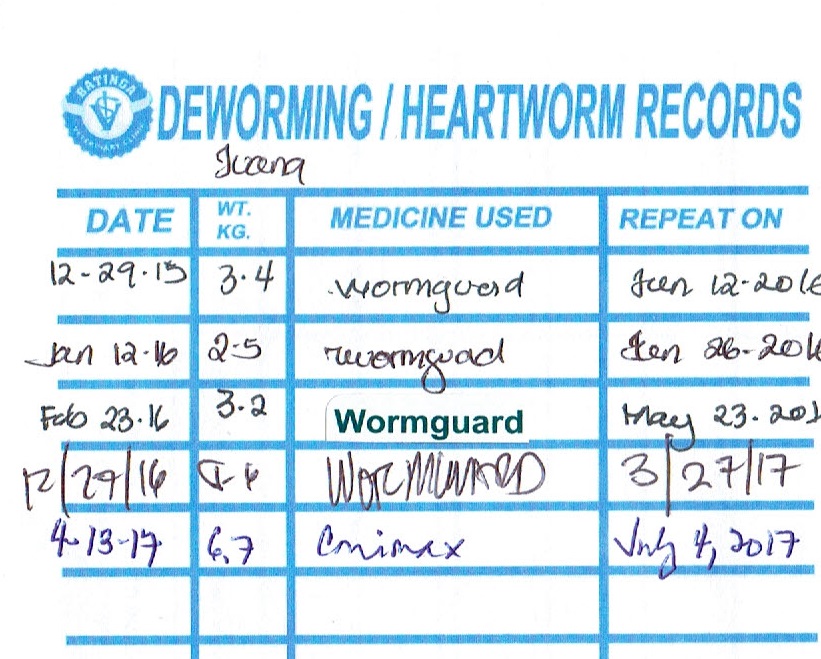 BATINGA
DEWORMING / HEARTWORM RECORDS
DATE WT. KG. MEDICINE USED REPEAT ON
12-29-15 3.4 wormguard Jan 12-2016
Jan 12-16 2-5 wormguad Jan 26-2016
Feb 23.16 3.2 Wormguard May 23.201
12/27/16 WORMGUARD 3/27/17
4-13-17 6.7 July 4, 2017